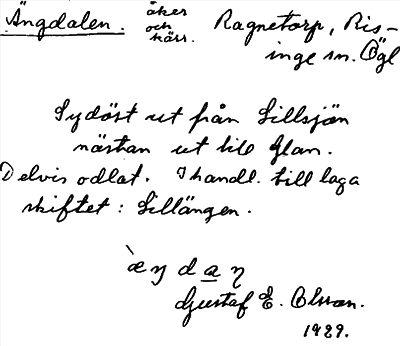 Ängdalen. åker och kärr. Ragnetorp, Ris-
inge sn. Ögl
Sydöst ut från Lillsjön
nästan ut till Glan.
Delvis odlat. I handl. till laga
skiftet: Lillängen.
`æŋdaη
Gustaf E. Olsson.
1929.